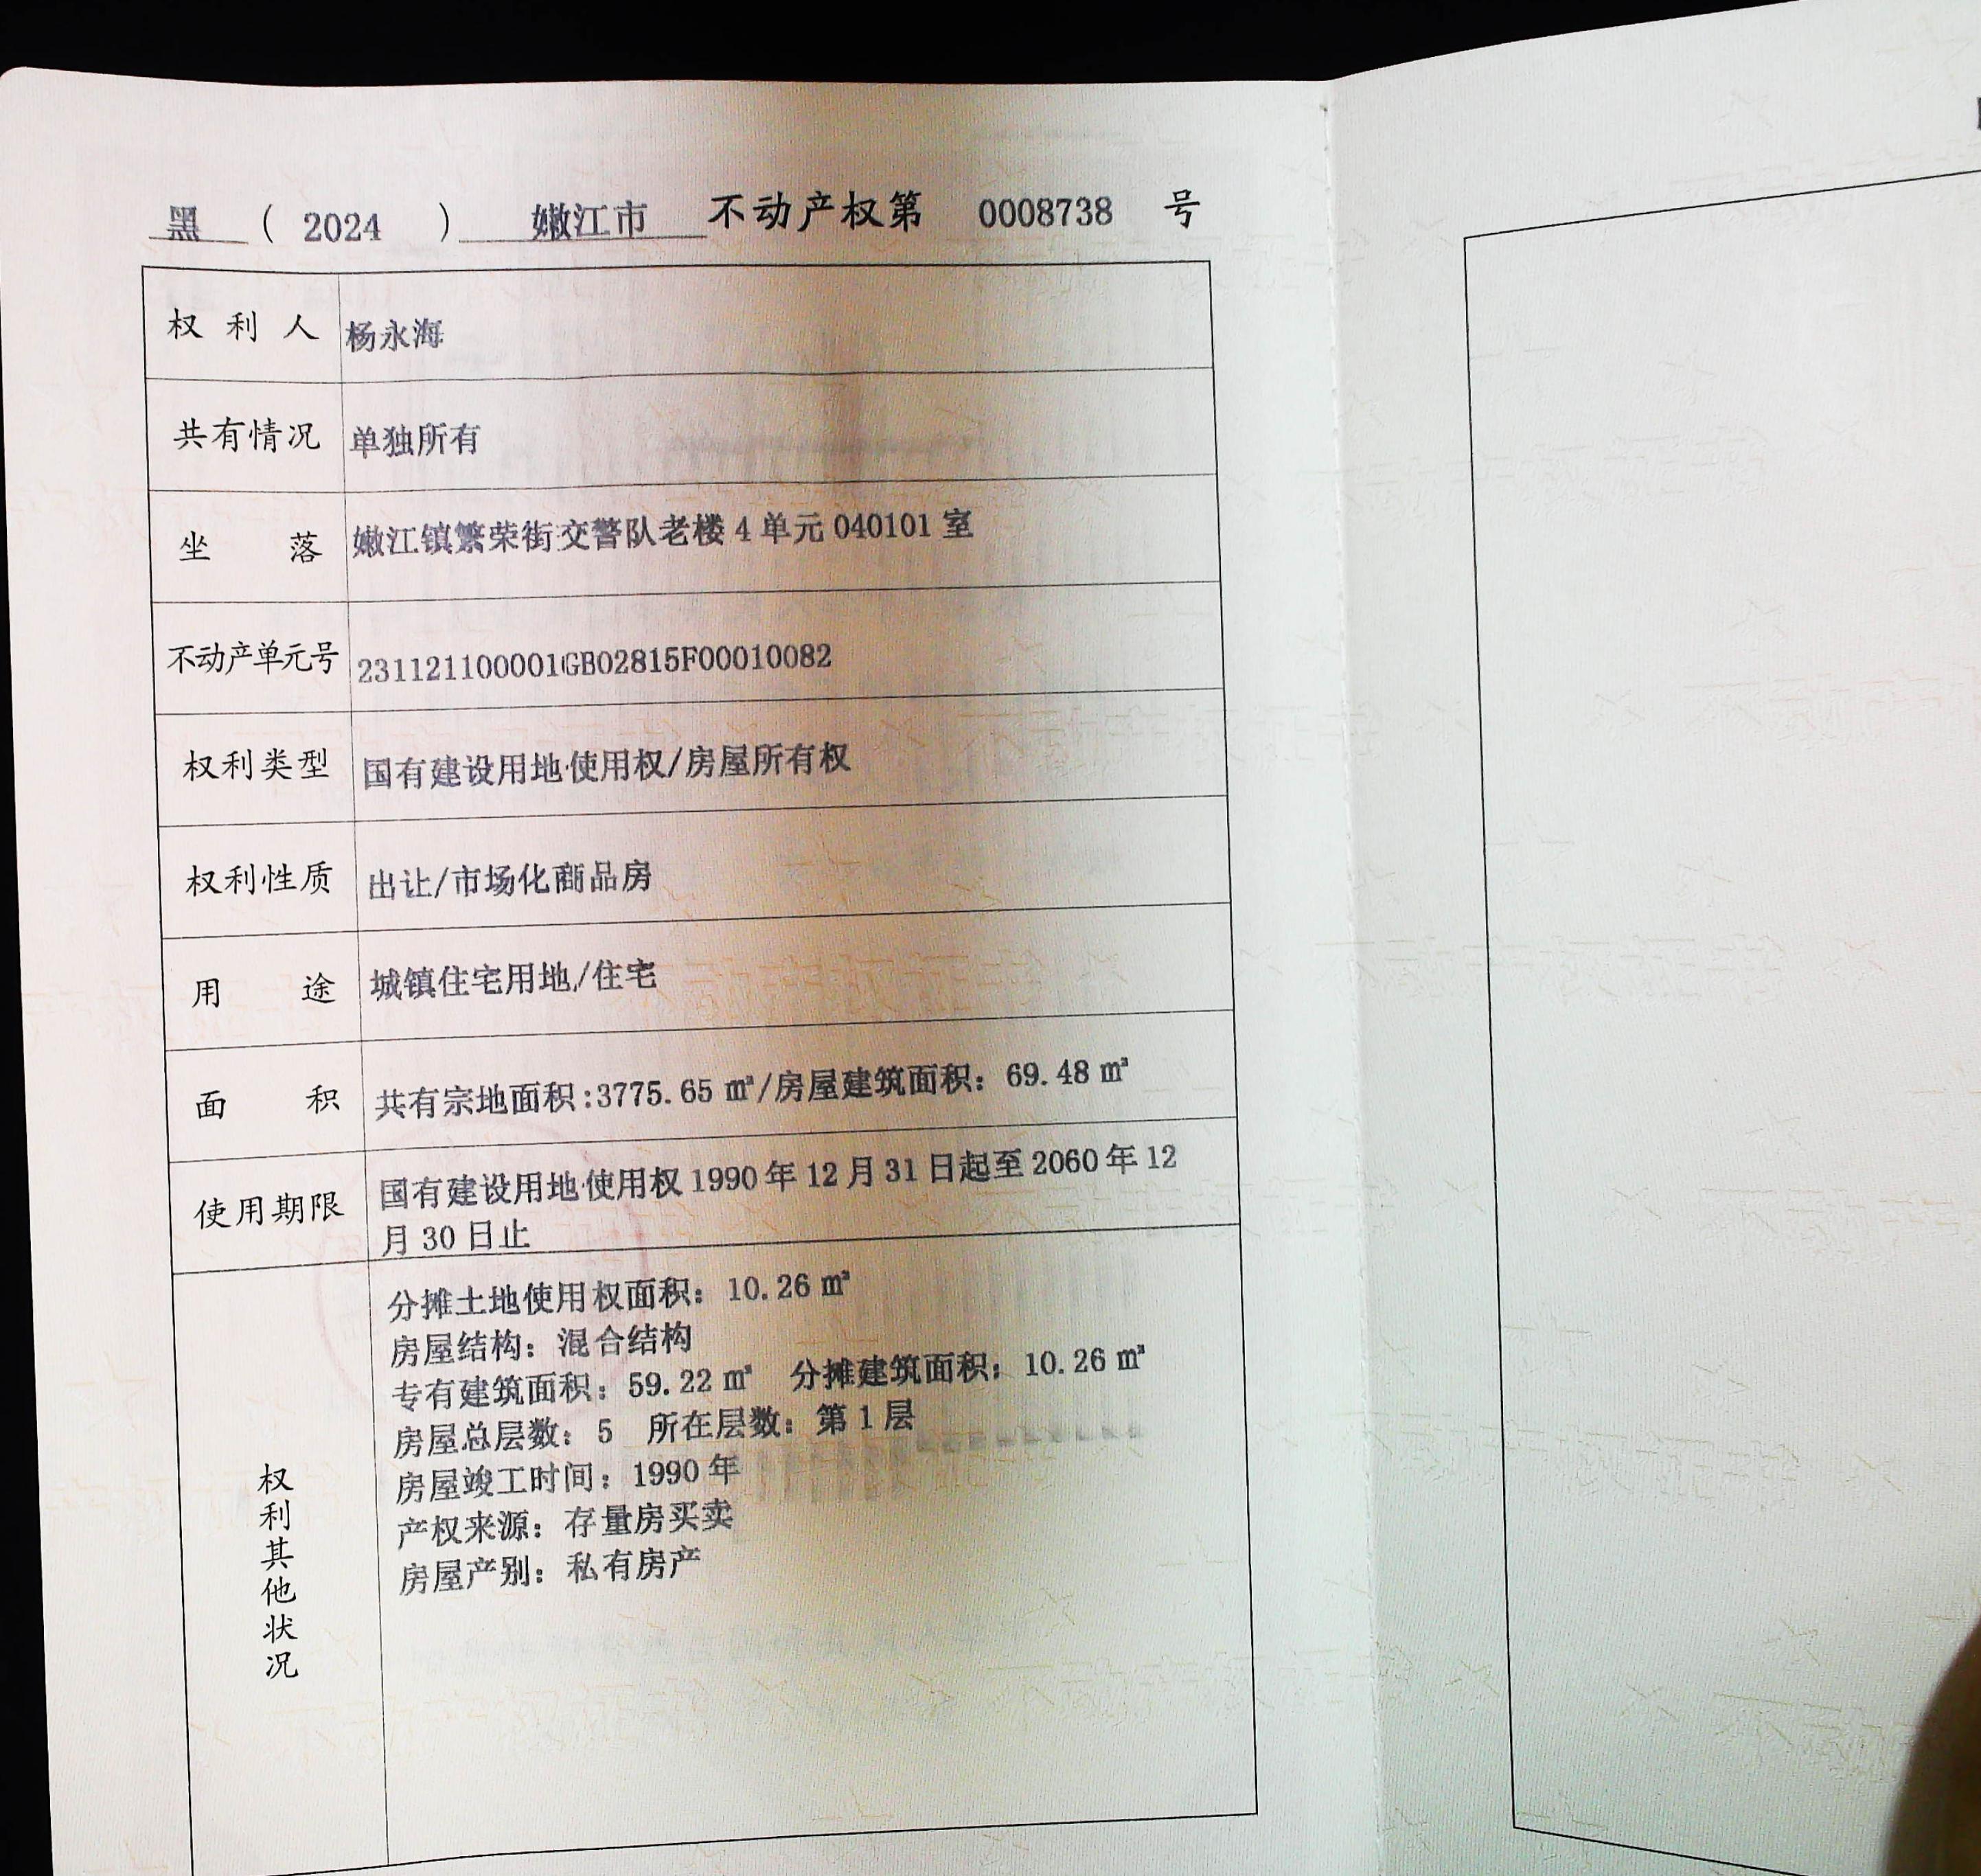 黑 ( 2024 ) 嫩江市 不动产权第 0008738 号
权利人 杨永海
共有情况 单独所有
坐落 嫩江镇繁荣街交警队老楼 4 单元 040101 室
不动产单元号 231121100001GB02815F00010082
权利类型 国有建设用地使用权/房屋所有权
权利性质 出让/市场化商品房
用途 城镇住宅用地/住宅
面积 共有宗地面积:3775.65 ㎡/房屋建筑面积：69.48 ㎡
使用期限 国有建设用地使用权 1990 年 12 月 31 日起至 2060 年 12
月 30 日止
权利其他状况
分摊土地使用权面积：10.26 ㎡
房屋结构：混合结构
专有建筑面积：59.22 ㎡ 分摊建筑面积：10.26 ㎡
房屋总层数：5 所在层数：第 1 层
房屋竣工时间：1990 年
产权来源：存量房买卖
房屋产别：私有房产